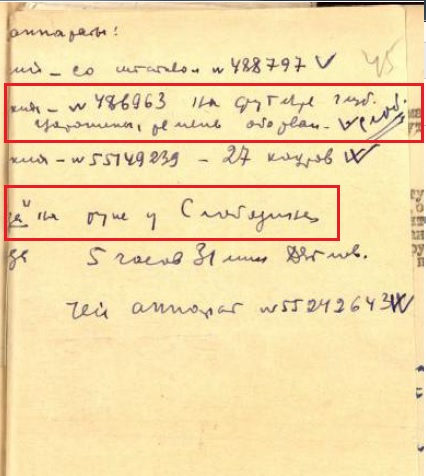 аппараты:
ний - со штативом № 488797 V
45
кина - № 486963 на футляре глуб.
царапины, ремень оборван - V Слоб.
кина - № 55149239 - 27 кадров V
да" на руке у Слободина
5 часов 31 мин Дятлов.
чей аппарат № 55242643 V